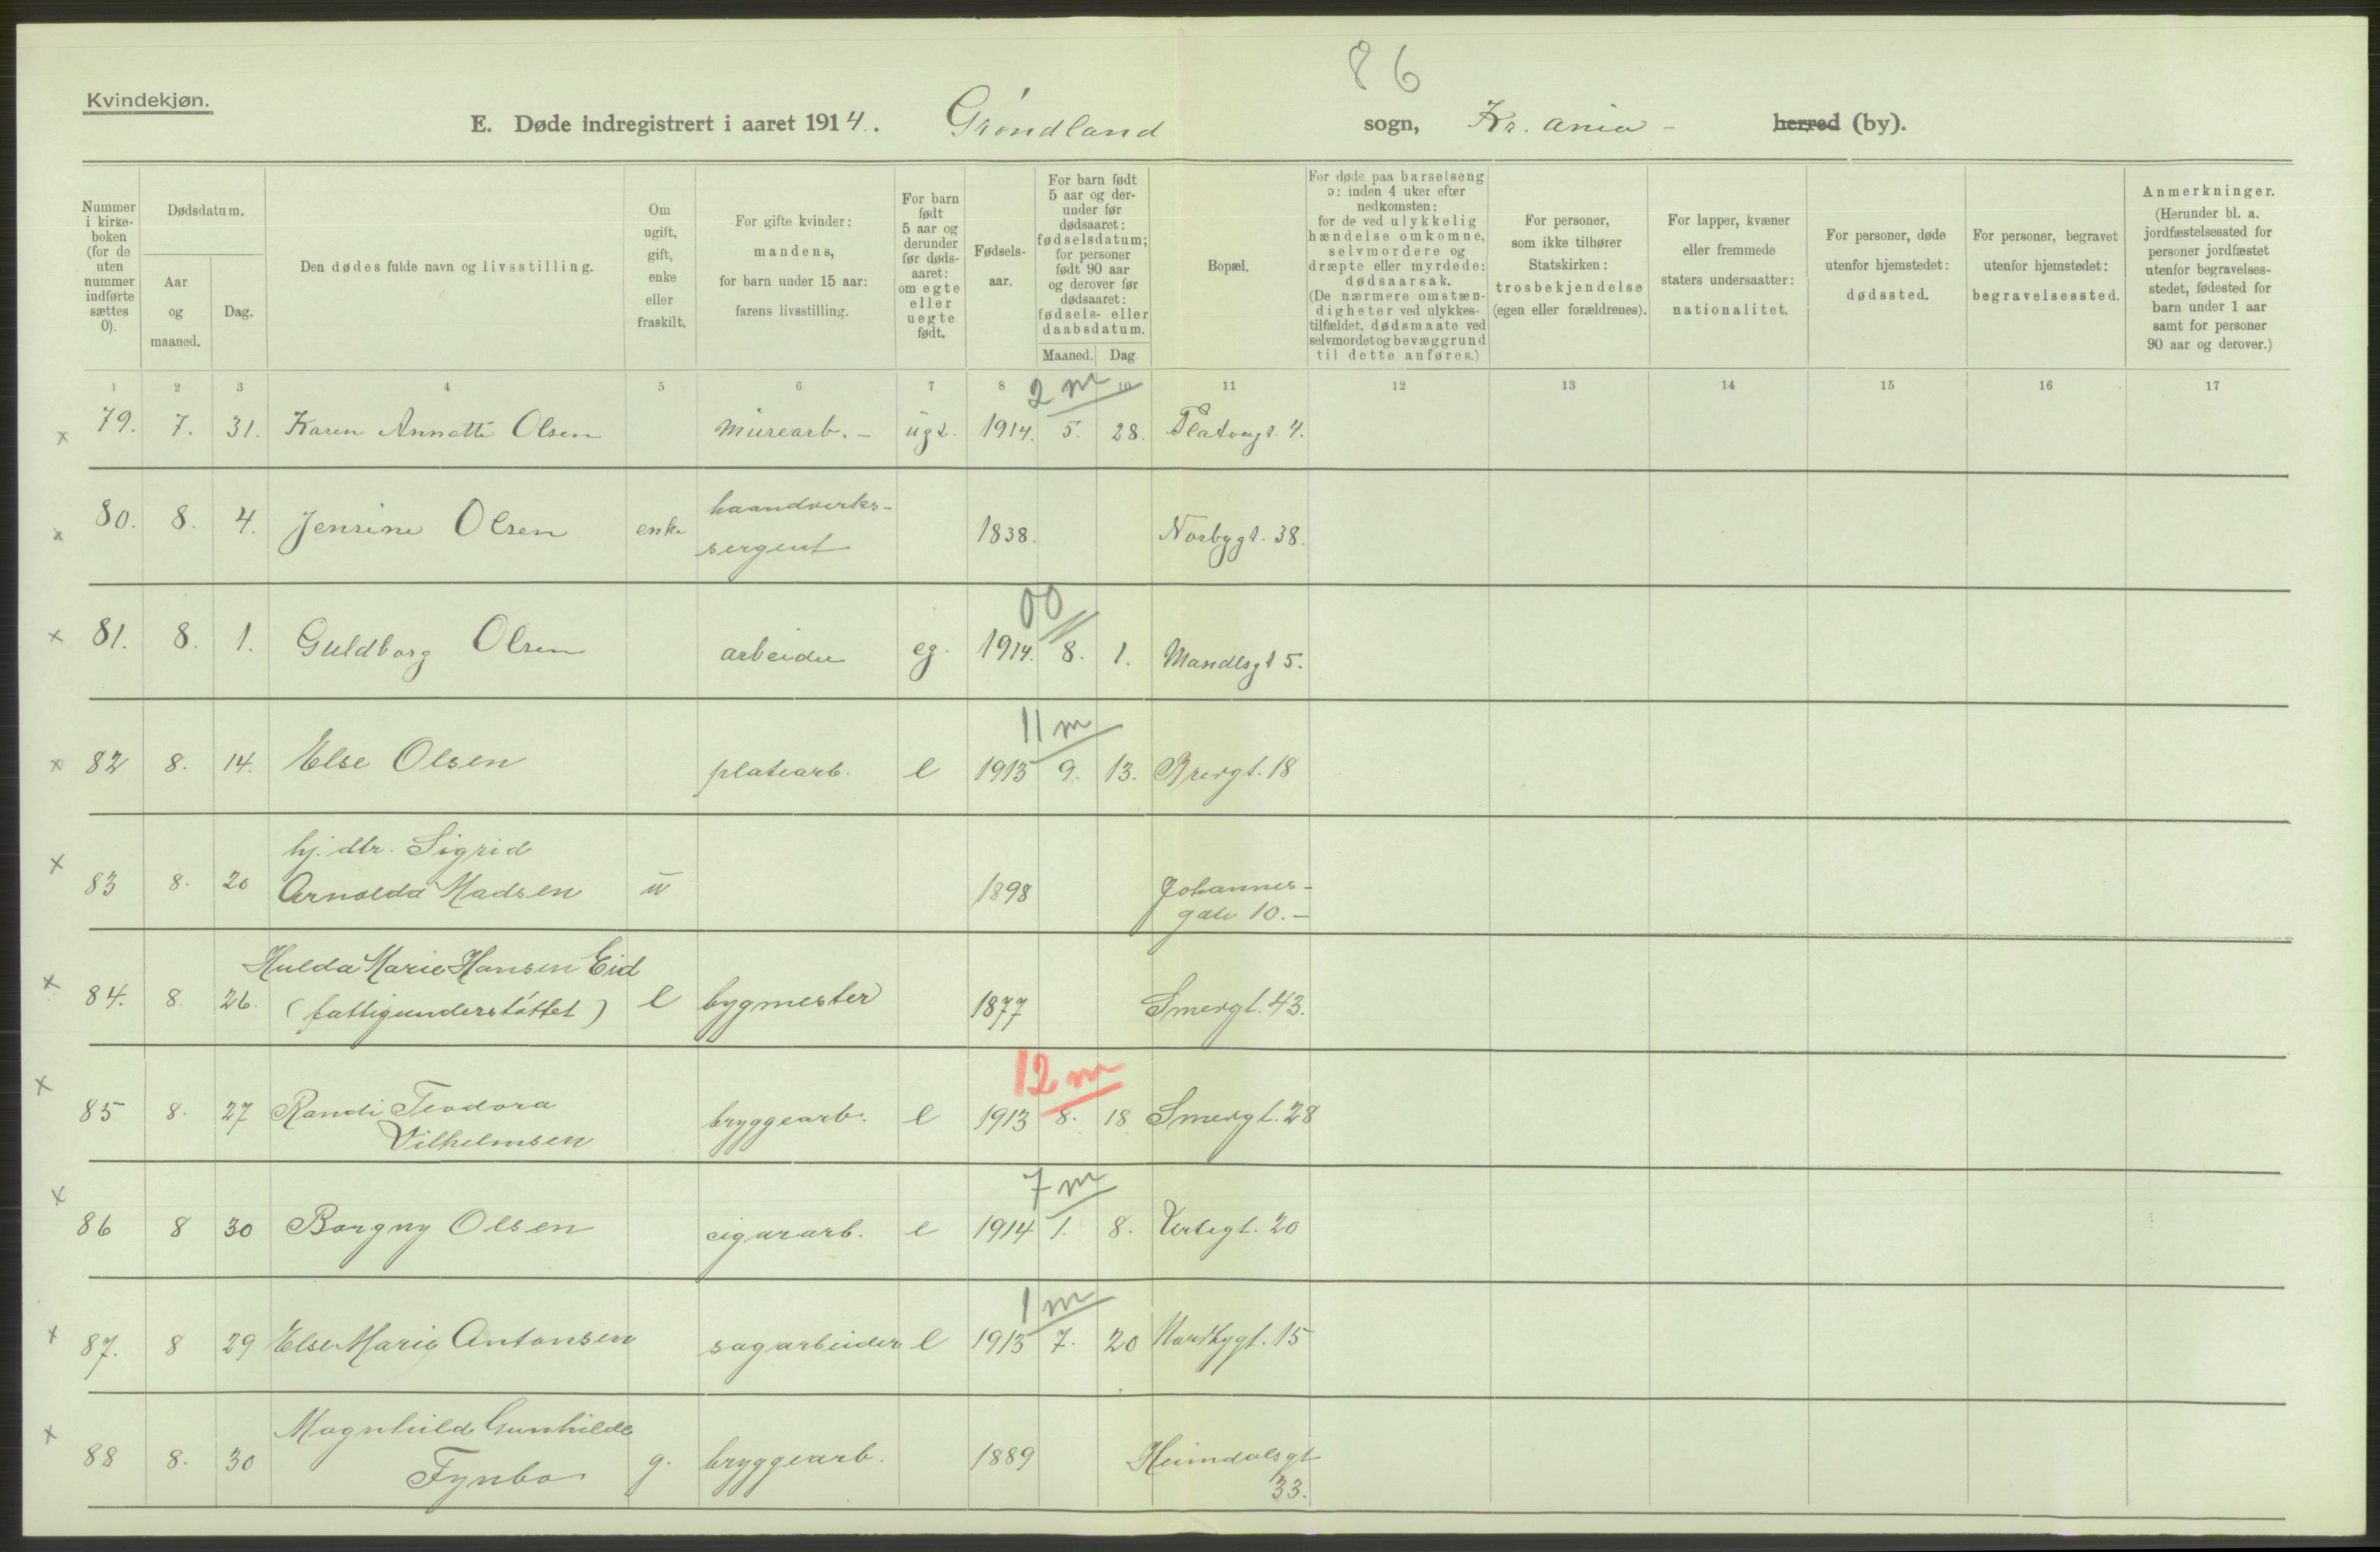 86
Kvindekjøn.
E. Døde indregistrert i aaret 1914. Grøndland sogn, Kr. ania - herred (by).
Nummer i kirke- boken (for de uten nummer indførte sættes 0).
Dødsdatum.
Aar og maaned.
Dag.
Den dødes fulde navn og livsstilling.
Om ugift, gift, enke eller fraskilt.
For gifte kvinder: mandens, for barn under 15 aar: farens livsstilling.
For barn født 5 aar og derunder før døds- aaret: om egte eller uegte født.
Fødsels- aar.
For barn født 5 aar og der- under før dødsaaret: fødselsdatum; for personer født 90 aar og derover før dødsaaret: fødsels- eller daabsdatum.
Maaned. Dag
Bopæl.
For døde paa barselseng ɔ: inden 4 uker efter nedkomsten: for de ved ulykkelig hændelse omkomne, selvmordere og dræpte eller myrdede: dødsaarsak. (De nærmere omstæn- digheter ved ulykkes- tilfældet, dødsmaate ved selvmordet og bevæggrund til dette anføres.)
For personer, som ikke tilhører Statskirken: trosbekjendelse (egen eller forældrenes).
For lapper, kvæner eller fremmede staters undersaatter: nationalitet.
For personer, døde utenfor hjemstedet: dødssted.
For personer, begravet utenfor hjemstedet: begravelsessted.
Anmerkninger. (Herunder bl. a. jordfæstelsessted for personer jordfæstet utenfor begravelses- stedet, fødested for barn under 1 aar samt for personer 90 aar og derover.)
1 2 3 4 5 6 7 8 10 11 12 13 14 15 16 17
2 m
x 79. 7. 31. Karen Annette Olsen murearb. - ugt. 1914. 5. 28. Platougt. 4.
x 80. 8. 4. Jensine Olsen enke haandverks-
sergent 1838. Norbygt. 38.
00
x 81. 8. 1. Guldborg Olsen arbeider eg. 1914. 8. 1. Mandlsgt 5.
11 m
x 82 8. 14. Else Olsen platearb. e 1913 9. 13. Brevgt. 18
hj. dtr. Sigrid
x 83 8. 20 Arnolda Madsen u 1898 Johannes-
gate 10. -
Hulda Marie Hansen Eid
x 84. 8. 26. (fattigunderstøttet) e bygmester 1877 Smergt. 43.
12 m
x 85 8. 27 Randi Teodora bryggearb. e 1913 8. 18 Smergt. 28
Vilhelmsen
7 m
x 86 8 30 Borgny Olsen cigararb. e 1914 1. 8. Urtegt. 20
1 m
x 87. 8 29 Else Marie Antonsen sagarbeider e 1913 7. 20 Nordbygt. 15
Magnhild Gunhilde
x 88 8. 30 Fynbo g. bryggearb. 1889 Heimdalsgt
33.